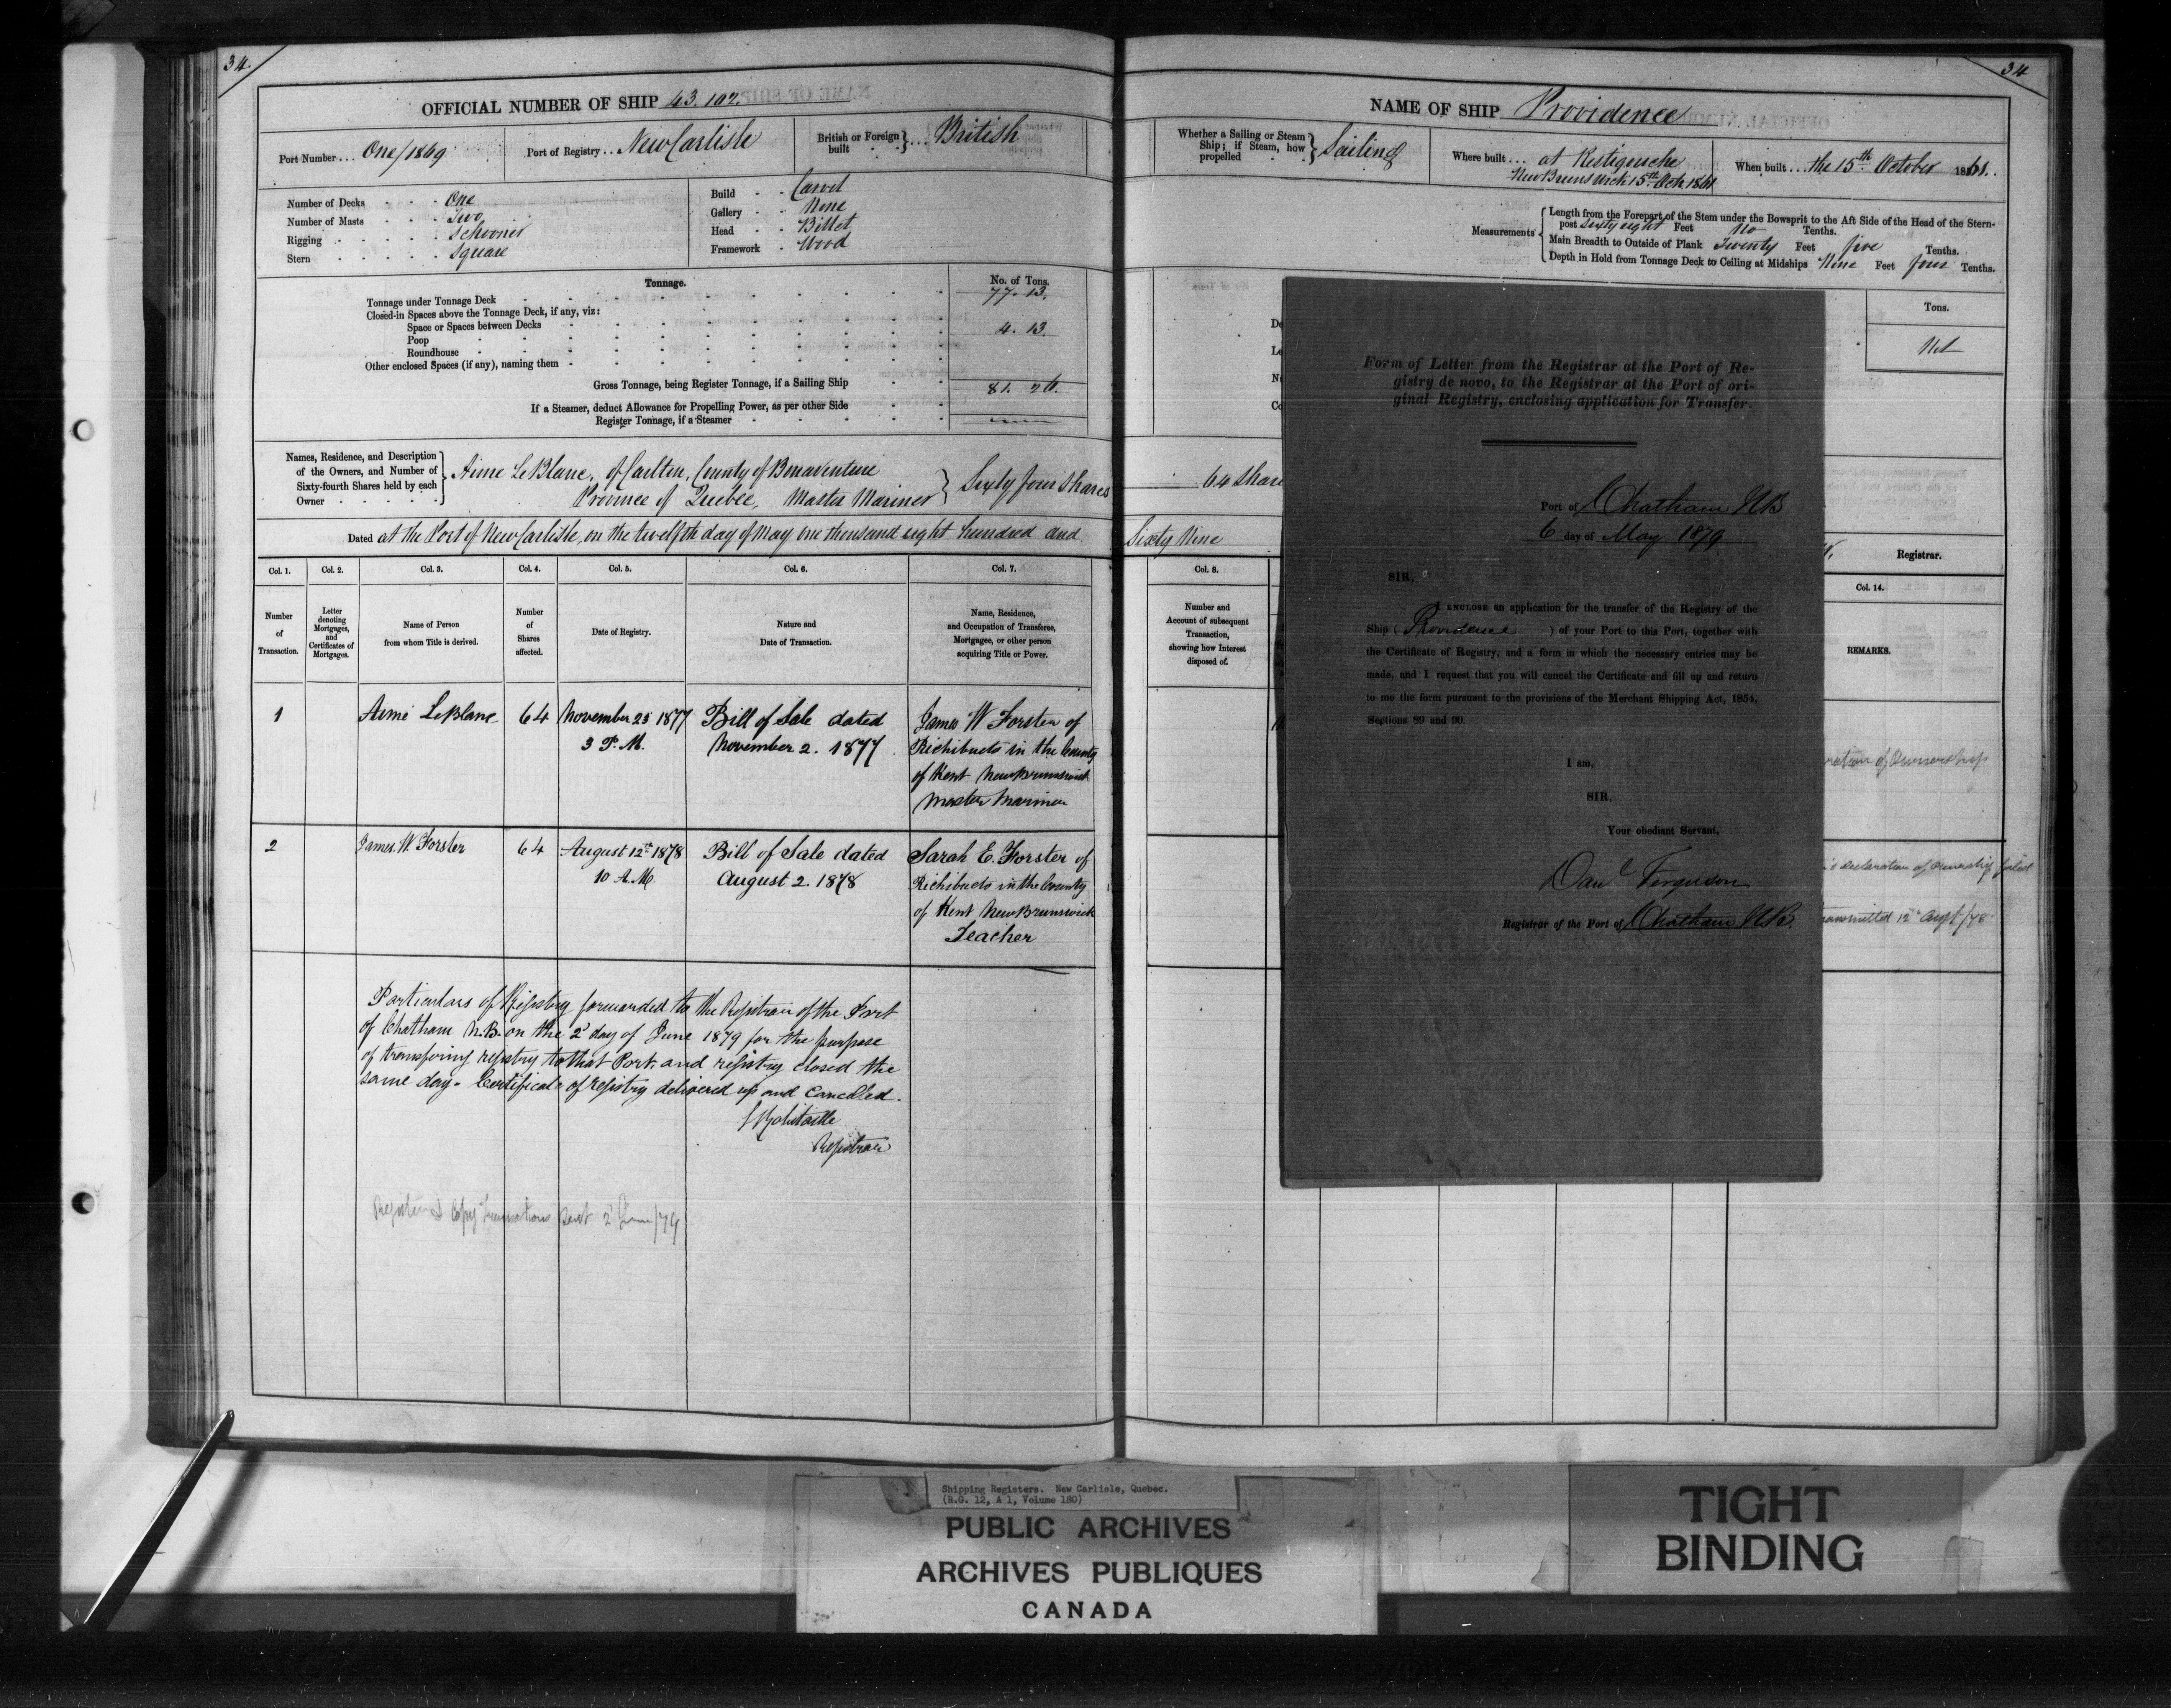 34
OFFICIAL NUMBER OF SHIP 43.102.
Port Number... One/1869
Port of Registry... New Carlisle
British or Foreign built } ... British
Number of Decks - - - One
Number of Masts - - - Two
Rigging - - - - - Schooner
Stern - - - - - Square
Build - - Carvel
Gallery - - None
Head - - Billet
Framework - Wood
Tonnage.
No. of Tons.
Tonnage under Tonnage Deck 77. 13.
Closed-in Spaces above the Tonnage Deck, if any, viz:
Space or Spaces between Decks 4. 13.
Poop
Roundhouse
Other enclosed Spaces (if any), naming them
Gross Tonnage, being Register Tonnage, if a Sailing Ship 81. 26.
If a Steamer, deduct Allowance for Propelling Power, as per other Side
Register Tonnage, if a Steamer
Names, Residence, and Description
of the Owners, and Number of
Sixty-fourth Shares held by each
Owner
Aime LeBlanc, of Carlton, County of Bonaventure
Province of Quebec, Master Mariner } Sixty four Shares
Dated at the Port of New Carlisle, on the twelfth day of May one thousand eight hundred and
Col. 1. Col. 2. Col. 3. Col. 4. Col. 5. Col. 6. Col. 7.
Number of Transaction.
Letter denoting Mortgages, and Certificates of Mortgages.
Name of Person from whom Title is derived.
Number of Shares affected.
Date of Registry.
Nature and Date of Transaction.
Name, Residence, and Occupation of Transferee, Mortgagee, or other person acquiring Title or Power.
1 Aimé LeBlanc 64 November 25 1877 Bill of Sale dated James W Forster of
3 P.M. November 2. 1877 Richibucto in the County
of Kent New Brunswick
Master Mariner
2 James W. Forster 64 August 12th 1878 Bill of Sale dated Sarah E. Forster of
10 A.M. August 2. 1878 Richibucto in the County
of Kent New Brunswick
Teacher
Particulars of Registry forwarded to the Registrar of the Port
of Chatham N.B. on the 2d day of June 1879 for the purpose
of transfering registry to that Port, and registry closed the
same day. Certificate of registry delivered up and cancelled.
Registrar
34
NAME OF SHIP Providence
Whether a Sailing or Steam Ship; if Steam, how propelled } Sailing
Where built... at Restigouche
New Brunswick 15th Octr. 1861
When built... the 15th October 1861.
Measurements
Length from the Forepart of the Stem under the Bowsprit to the Aft Side of the Head of the Stern-
post Sixty eight Feet No Tenths.
Main Breadth to Outside of Plank Twenty Feet five Tenths.
Depth in Hold from Tonnage Deck to Ceiling at Midships Nine Feet four Tenths.
Tons.
64 Share
Sixty Nine
Registrar.
Col. 8.
Col. 14.
Number and Account of subsequent Transaction, showing how Interest disposed of.
REMARKS.
of Ownership
declaration of ownership
12th Augt/78
Form of Letter from the Registrar at the Port of Re-
gistry de novo, to the Registrar at the Port of ori-
ginal Registry, enclosing application for Transfer.
Port of Chatham NB
6 day of May 1879
SIR,
I ENCLOSE an application for the transfer of the Registry of the
Ship ( Providence ) of your Port to this Port, together with
the Certificate of Registry, and a form in which the necessary entries may be
made, and I request that you will cancel the Certificate and fill up and return
to me the form pursuant to the provisions of the Merchant Shipping Act, 1854,
Sections 89 and 90.
I am,
SIR,
Your obediant Servant,
Danl Ferguson
Registrar of the Port of Chatham NB.
Shipping Registers. New Carlisle, Quebec.
(R.G. 12, A 1, Volume 180)
PUBLIC ARCHIVES
ARCHIVES PUBLIQUES
CANADA
TIGHT
BINDING